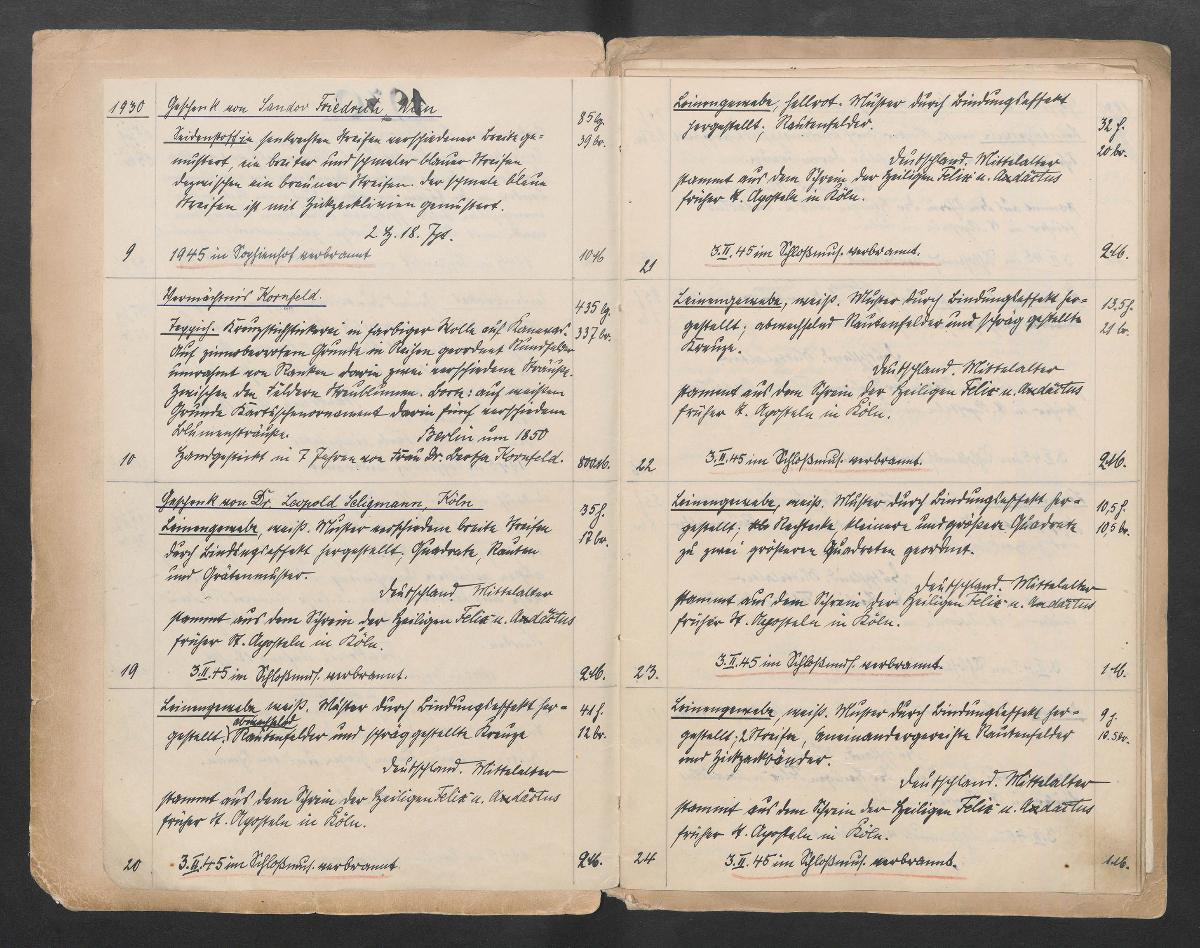 1930
Geschenk von Sandor Friedrich, Wien
Seidenstoff in senkrechten Streifen verschiedener Breite ge-
mustert, ein breiter und schmaler blauer Streifen
dazwischen ein brauner Streifen. Der schmale blaue
Streifen ist mit Zickzacklinien gemustert.
2. H. 18. Jht.
85 lg.
39 br.
9
1945 in Sophienhof verbrannt
10 M
Vermächtnis Kornfeld.
Teppich. Kreuzstichstickerei in farbiger Wolle auf Kanevas.
Auf zinnoberrotem Grunde in Reihen geordnet Rundfelder
umrahmt von Ranken darin zwei verschiedene Sträuße.
Zwischen den Feldern Streublumen. Borte: auf weißem
Grunde Kartuschenornament darin fünf verschiedene
Blumensträuße. Berlin um 1850
Handgestickt in 7 Jahren von Frau Dr. Bertha Kornfeld.
435 lg.
337 br.
10
800 M.
Geschenk von Dr. Leopold Seligmann, Köln
Leinengewebe, weiß. Muster verschieden breite Streifen
durch Bindungseffekt hergestellt, Quadrate, Rauten
und Grätenmuster.
Deutschland. Mittelalter
stammt aus dem Schrein der Heiligen Felix u. Audactus
früher St. Aposteln in Köln.
35 h.
12 br.
19
3.II.45 im Schloßmus. verbrannt.
2 M.
Leinengewebe, weiß. Muster durch Bindungseffekt her-
abwechselnd
gestellt; Rautenfelder und schräg gestellte Kreuze
Deutschland. Mittelalter
stammt aus dem Schrein der Heiligen Felix u. Audactus
früher St. Aposteln in Köln.
41 h.
12 br.
20
3.II.45 im Schloßmus. verbrannt
2 M.
Leinengewebe, hellrot. Muster durch Bindungseffekt
hergestellt; Rautenfelder.
Deutschland. Mittelalter
stammt aus dem Schrein der Heiligen Felix u. Audactus
früher St. Aposteln in Köln.
32 h.
20 br.
21
3.II.45 im Schloßmus. verbrannt.
2 M.
Leinengewebe, weiß. Muster durch Bindungseffekt her-
gestellt; abwechselnd Rautenfelder und schräg gestellte
Kreuze.
Deutschland. Mittelalter
stammt aus dem Schrein der Heiligen Felix u. Audactus
früher St. Aposteln in Köln.
13,5 h.
21 br.
22
3.II.45 im Schloßmus. verbrannt.
2 M.
Leinengewebe, weiß. Muster durch Bindungseffekt her-
gestellt; Rechtecke, kleinere und größere Quadrate
zu zwei größeren Quadraten geordnet.
Deutschland. Mittelalter
stammt aus dem Schrein der Heiligen Felix u. Audactus
früher St. Aposteln in Köln.
10,5 h.
10,5 br.
23.
3.II.45 im Schloßmus. verbrannt.
1 M.
Leinengewebe, weiß. Muster durch Bindungseffekt her-
gestellt; 2 Streifen, aneinandergereihte Rautenfelder
und Zickzackbänder.
Deutschland. Mittelalter
stammt aus dem Schrein der Heiligen Felix u. Audactus
früher St. Aposteln in Köln.
9 h.
10.5 br.
24
3.II.45 im Schloßmus. verbrannt.
1 M.